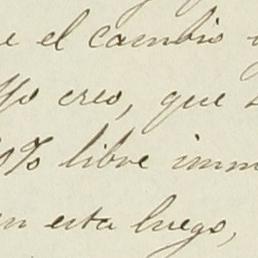 e el cambio y
Yo creo, que s
0% libre imm
en esta luego,